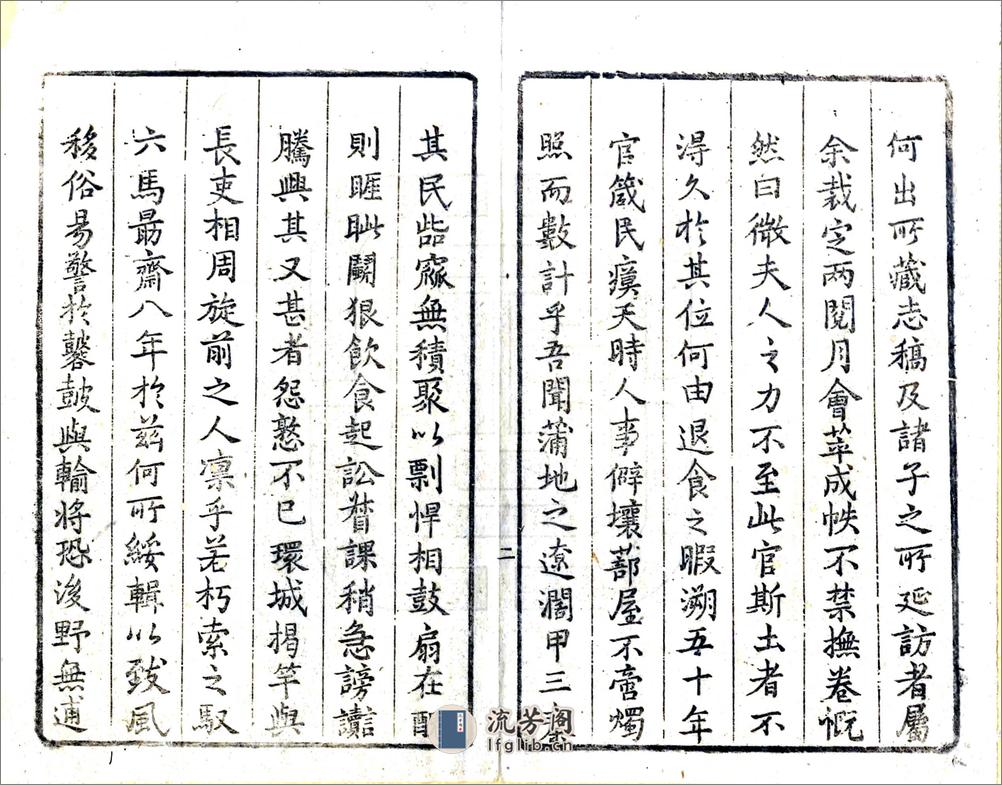 何出所藏志稿及諸子之所延訪者屬
余裁定两閱月會萃成帙不禁撫卷慨
然曰微夫人之力不至此官斯土者不
淂久於其位何由退食之暇溯五十年
官箴民瘼天時人事僻壤蔀屋不啻燭
照而數計乎吾聞蒲地之遼濶甲三
其民呰窳無積聚以剽悍相鼓扇在酉
則睚眦鬭狠飲食起訟督課稍急謗讟
騰興其又甚者怨憝不已環城揭竿與
長吏相周旋前之人凛乎若朽索之馭
六馬朂齋八年於茲何所綏輯以致風
移俗易警於鼛鼓與輸將恐後野無逋
二
流芳閣
lfglib.cn